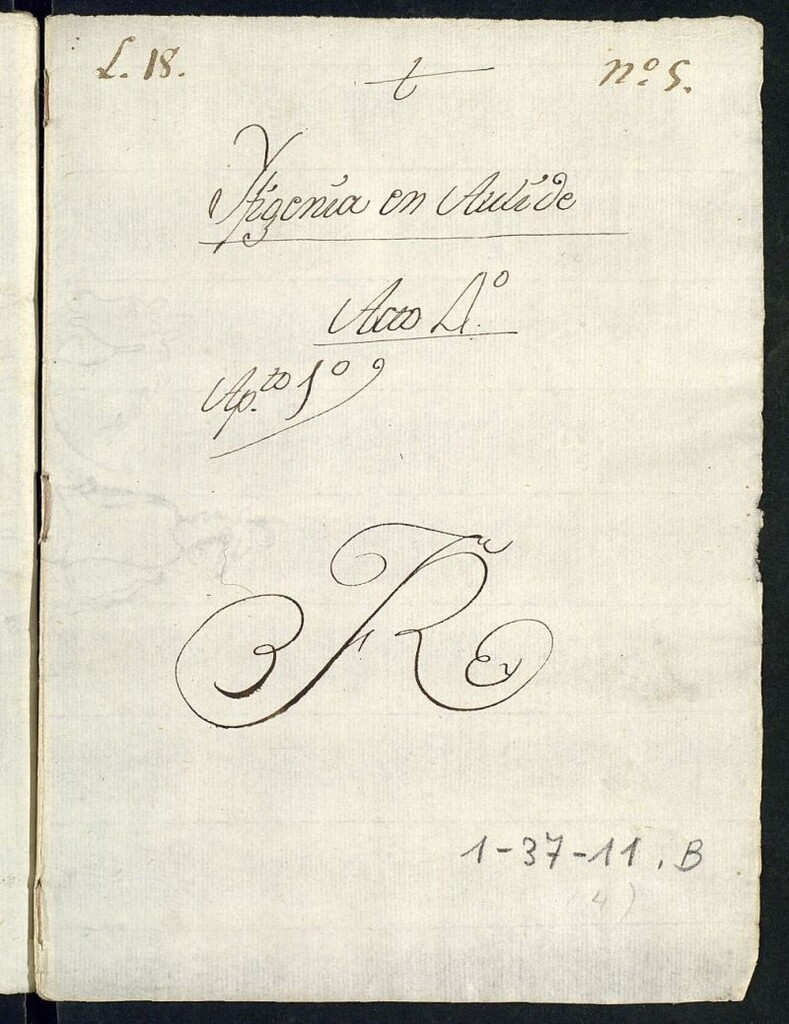 L. 18.
t
nº 5.
Yfigenia en Aulide
Acto 4.º
Ap.to 1º
1-37-11. B
(4)